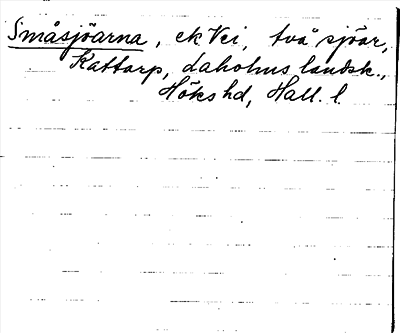 Småsjöarna, ek Vei, två sjöar,
Kattarp, Laholms landsk.,
Höks hd, Hall. l.